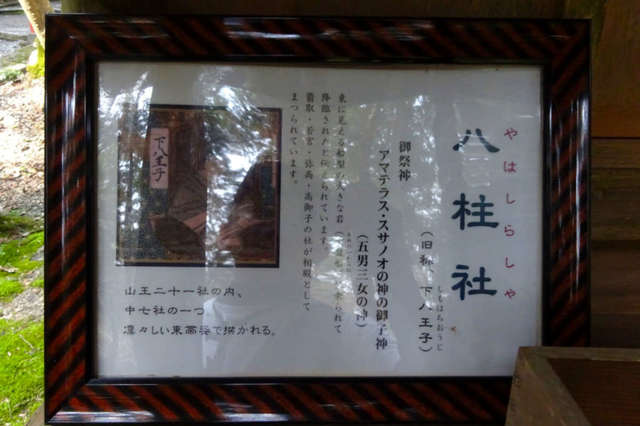 八柱社
やはしらしゃ
(旧称、下八王子)
しもはちおうじ
御祭神
アマテラス・スサノオの神の御子神
(五男三女の神)
東に見える
大きな岩
降臨された
られています。
の社が相殿として
まつられています。
下八王子
山王二十一社の内、
中七社の一つ
凛々しい東帯姿で描かれる。